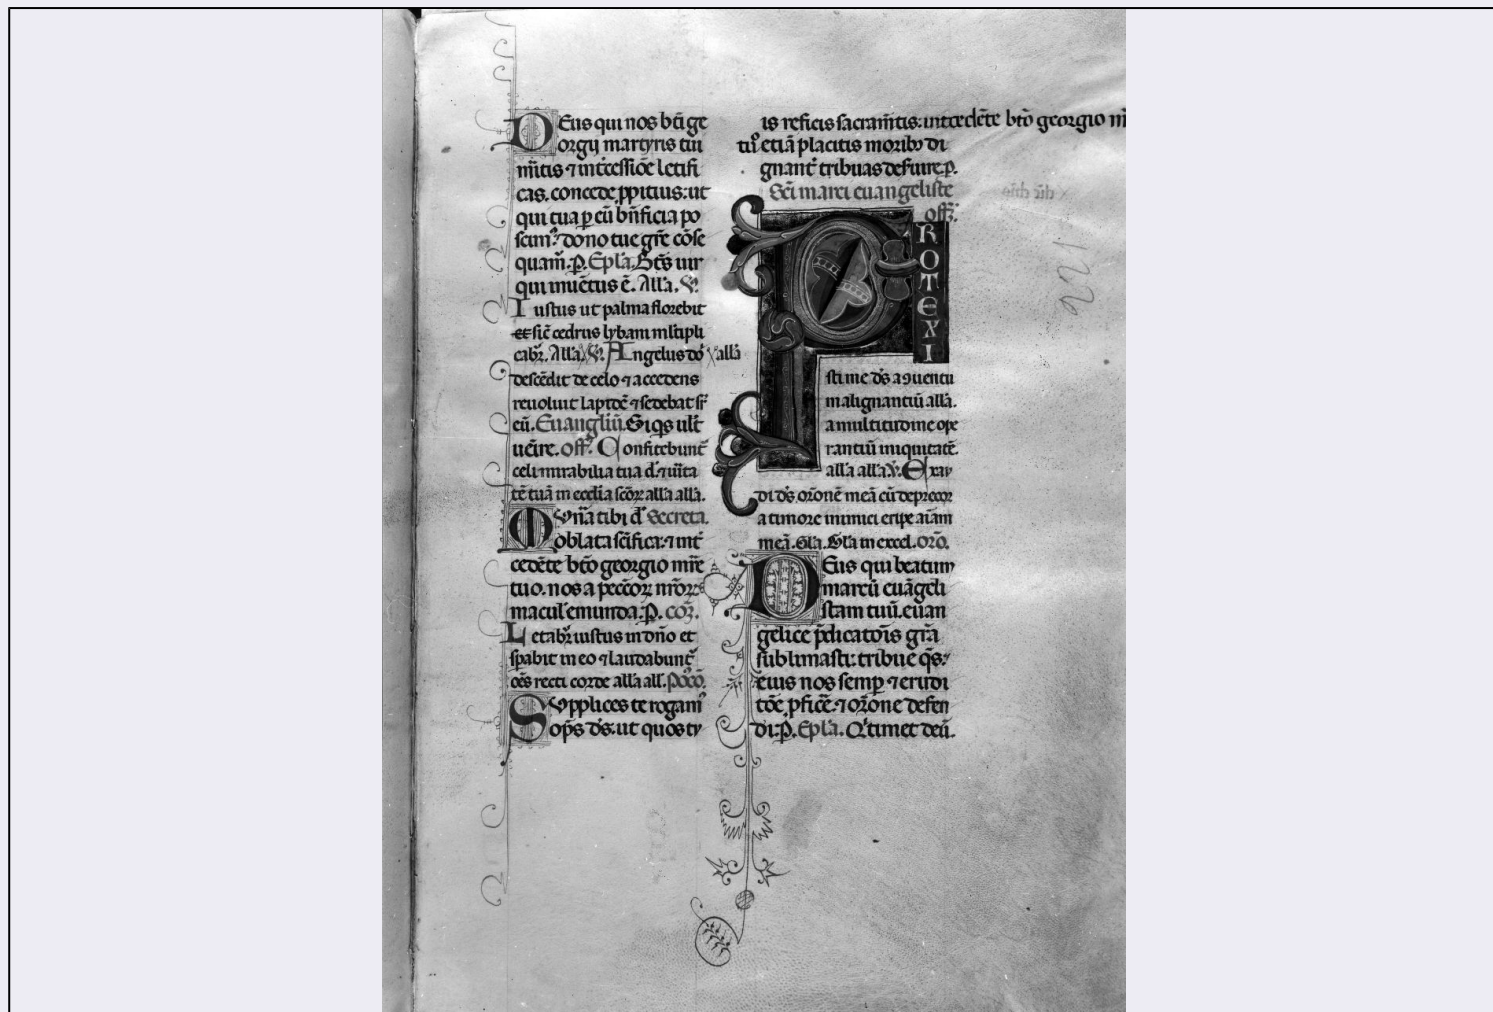 DEus qui nos bti ge
orgij martyris tui
mitis ⁊ intcessiõe letifi
cas. concede ppitius: ut
qui tua p eũ bñficia po
scim⁹. dono tue grẽ cõse
quam̃. P. Epl̃a. Scẽs uir
qui inuẽtus ẽ. All̃a. V.
Iustus ut palma florebit
et sic̃ cedrus lybani ml̃tipli
cabr̃. All̃a. V. Angelus dñ all̃a
descẽdit de celo ⁊ accedens
reuoluit lapidẽ ⁊ sedebat sr̃
eũ. Euangliũ. Siqs ult̃
uẽire. off. Confitebunt̃
celi mirabilia tua d. ⁊ uit̃a
tẽ tuã in ecclĩa scõꝝ all̃a all̃a.
Mun̄a tibi d Secreta.
oblata scĩfica: ⁊ int̃
cedẽte btõ georgio mr̃e
tuo. nos a pecc̃oꝝ nrõꝝ
macul̃ emunda. P. cõ.
Letabr̃ iustus in dño et
spabit in eo ⁊ laudabunt̃
oẽs recti corde all̃a all̃. Pocõ.
Supplices te rogam⁹
ops̃ ds̃. ut quos tu
is reficis sacram̃tis: intcedẽte btõ georgio m̃
tiƀ etiã placitis moribƷ di
gnant̃ tribuas deseruire. P.
Sc̃i marci euangeliste
off.
PROTEXI
sti me ds̃ a ꝯuentu
malignantiũ all̃a.
a multitudine ope
rantiũ iniquitatẽ.
all̃a all̃a. V. Exau
di ds̃ orõnẽ meã cũ deprecor
a timore inimici eripe aĩam
meã. Gl̃a. Gl̃a in excel. orõ.
DEus qui beatum
marcũ euãgeli
stam tuũ. euan
gelice p̃dicatõis grã
sublimasti: tribue qs̃.
eius nos semp ⁊ erudi
tõe pficẽ. ⁊ orõne defen
di. P. Epl̃a. Q timet deũ.
221